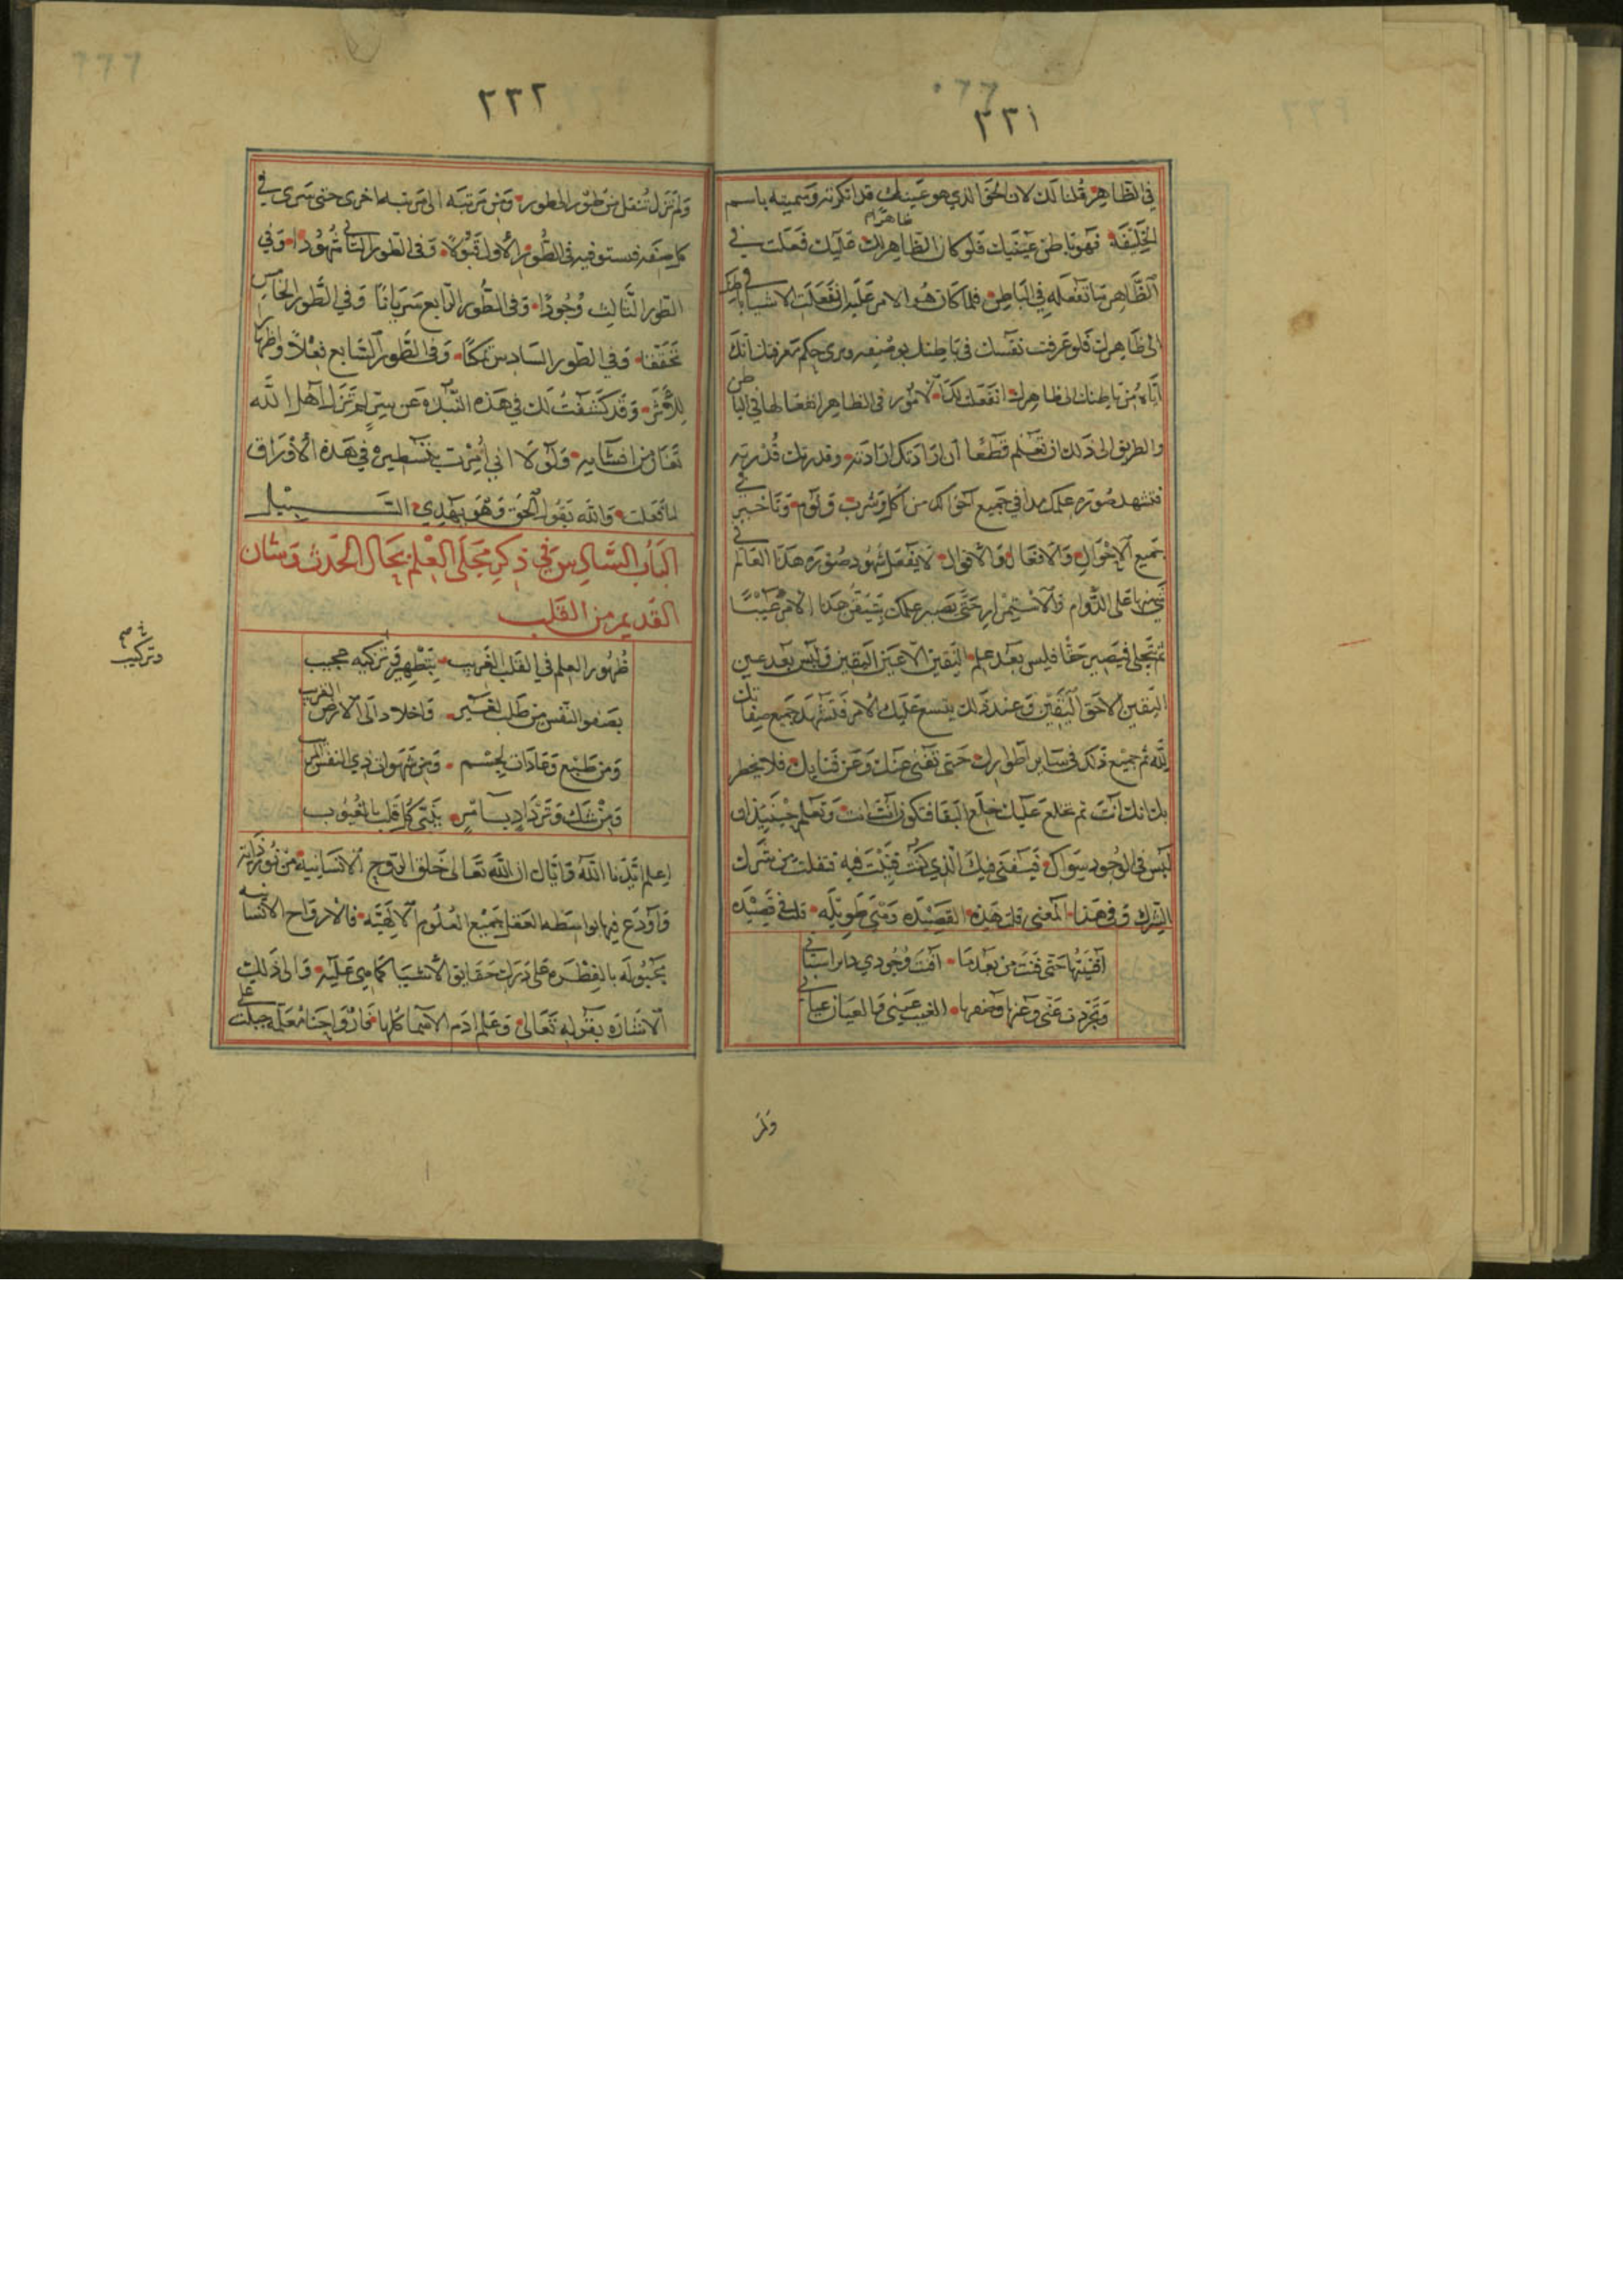 ٢٢١
في الظاهر قلنا لك لان الحق الذي هو عينك قد انكرته وسميته باسم
الخليفة فهو باطن عينك فلو كان الظاهر لك عليك فعلت في
ظاهرا م
الظاهر ما تفعله في الباطن فلما كان هوالامر عليه انفعلت الاشيا في باطنك
لا في ظاهرك فلو عرفت نفسك في باطنك
اياه من باطنك الى ظاهرك انفعلت لك الامور في الظاهر انفعالها في الباطن
والطريق الى ذلك ان تعلم قطعا ان ارادتك ارادته وقدرتك قدرته
فتشهد صورة علمك هذا في جميع احوالك من اكل وشرب ونوم وتاخير في
جميع الاحوال والافعال والاقوال لا يفعل شهود صورة هذا العالم في
شي منها على الدوام والاستمرار حتى يصير علمك يتيقن هذا الامر عينا
ثم تتجلى فيصير حقا فليس بعد علم اليقين الا عين اليقين وليس بعد عين
اليقين الا حق اليقين وعند ذلك يتسع عليك الامر فتشهد جميع صفاتك
لله ثم جميع ذلك في سائر اطوارك حتى تفنى عنك وعن فنايك فلا يخطر
بك انك انت ثم تخلع عليك خلع البقا فتكون انت انت وتعلم حينيذ ان
ليس في الوجود سواك فيستغني فيك الذي كنت فنيت فيه فتفلت من شرك
الشرك وفي هذا المعنى قلت هذه القصيدة وهي طويلة قلت في قصيدة
افنيتها حتى فنت من بعد ما • افنت وجودي دابرا سباني
وتجردت عني وعنها وصفها • الغيب عيني والعيان عياني
ولم
٢٢٢
ولم تزل تنقل من طور الى طور ومن مرتبة الى مرتبة اخرى حتى تسرى في
كل صفة فتستوفيه في الطور الاول قبولا وفي الطور الثاني شهودا وفي
الطور الثالث وجودا وفي الطور الرابع سريانا وفي الطور الخامس
تحققا وفي الطور السادس تمكنا وفي الطور السابع فعلا واظهارا
للاثر وقد كشفت لك في هذه النبذة عن سر لم تزل اهل الله
تغار من افشايه ولولا اني امرت بتسطيره في هذه الاوراق
لما فعلت والله يقول الحق وهو يهدي السبيل
الباب السادس في ذكر مجلى العلم بحال الحدث وشان
القديم من القلب
ظهور العلم في القلب الغريب • بتطهير وتزكيه مجيب
وتركيب
صح
بصفو النفس من طلب لغير • واخلاد الى الارض الغريب
ومن طبع وعادات لجسم • ومن شهوات ذي النفس
ومن شك وترداد بامر • ينتي كل قلب بالغيوب
اعلم ايدنا الله واياك ان الله تعالى خلق الروح الانسانية من نور ذاته
واودع فيها بواسطه العقل جميع العلوم الالهية فالارواح الانسانيه
مجبوله بالفطره على درك حقايق الاشيا كما هي عليه والى ذلك
الاشاره بقوله تعالى وعلم ادم الاسما كلها فارواحنا معلمه جبلت على